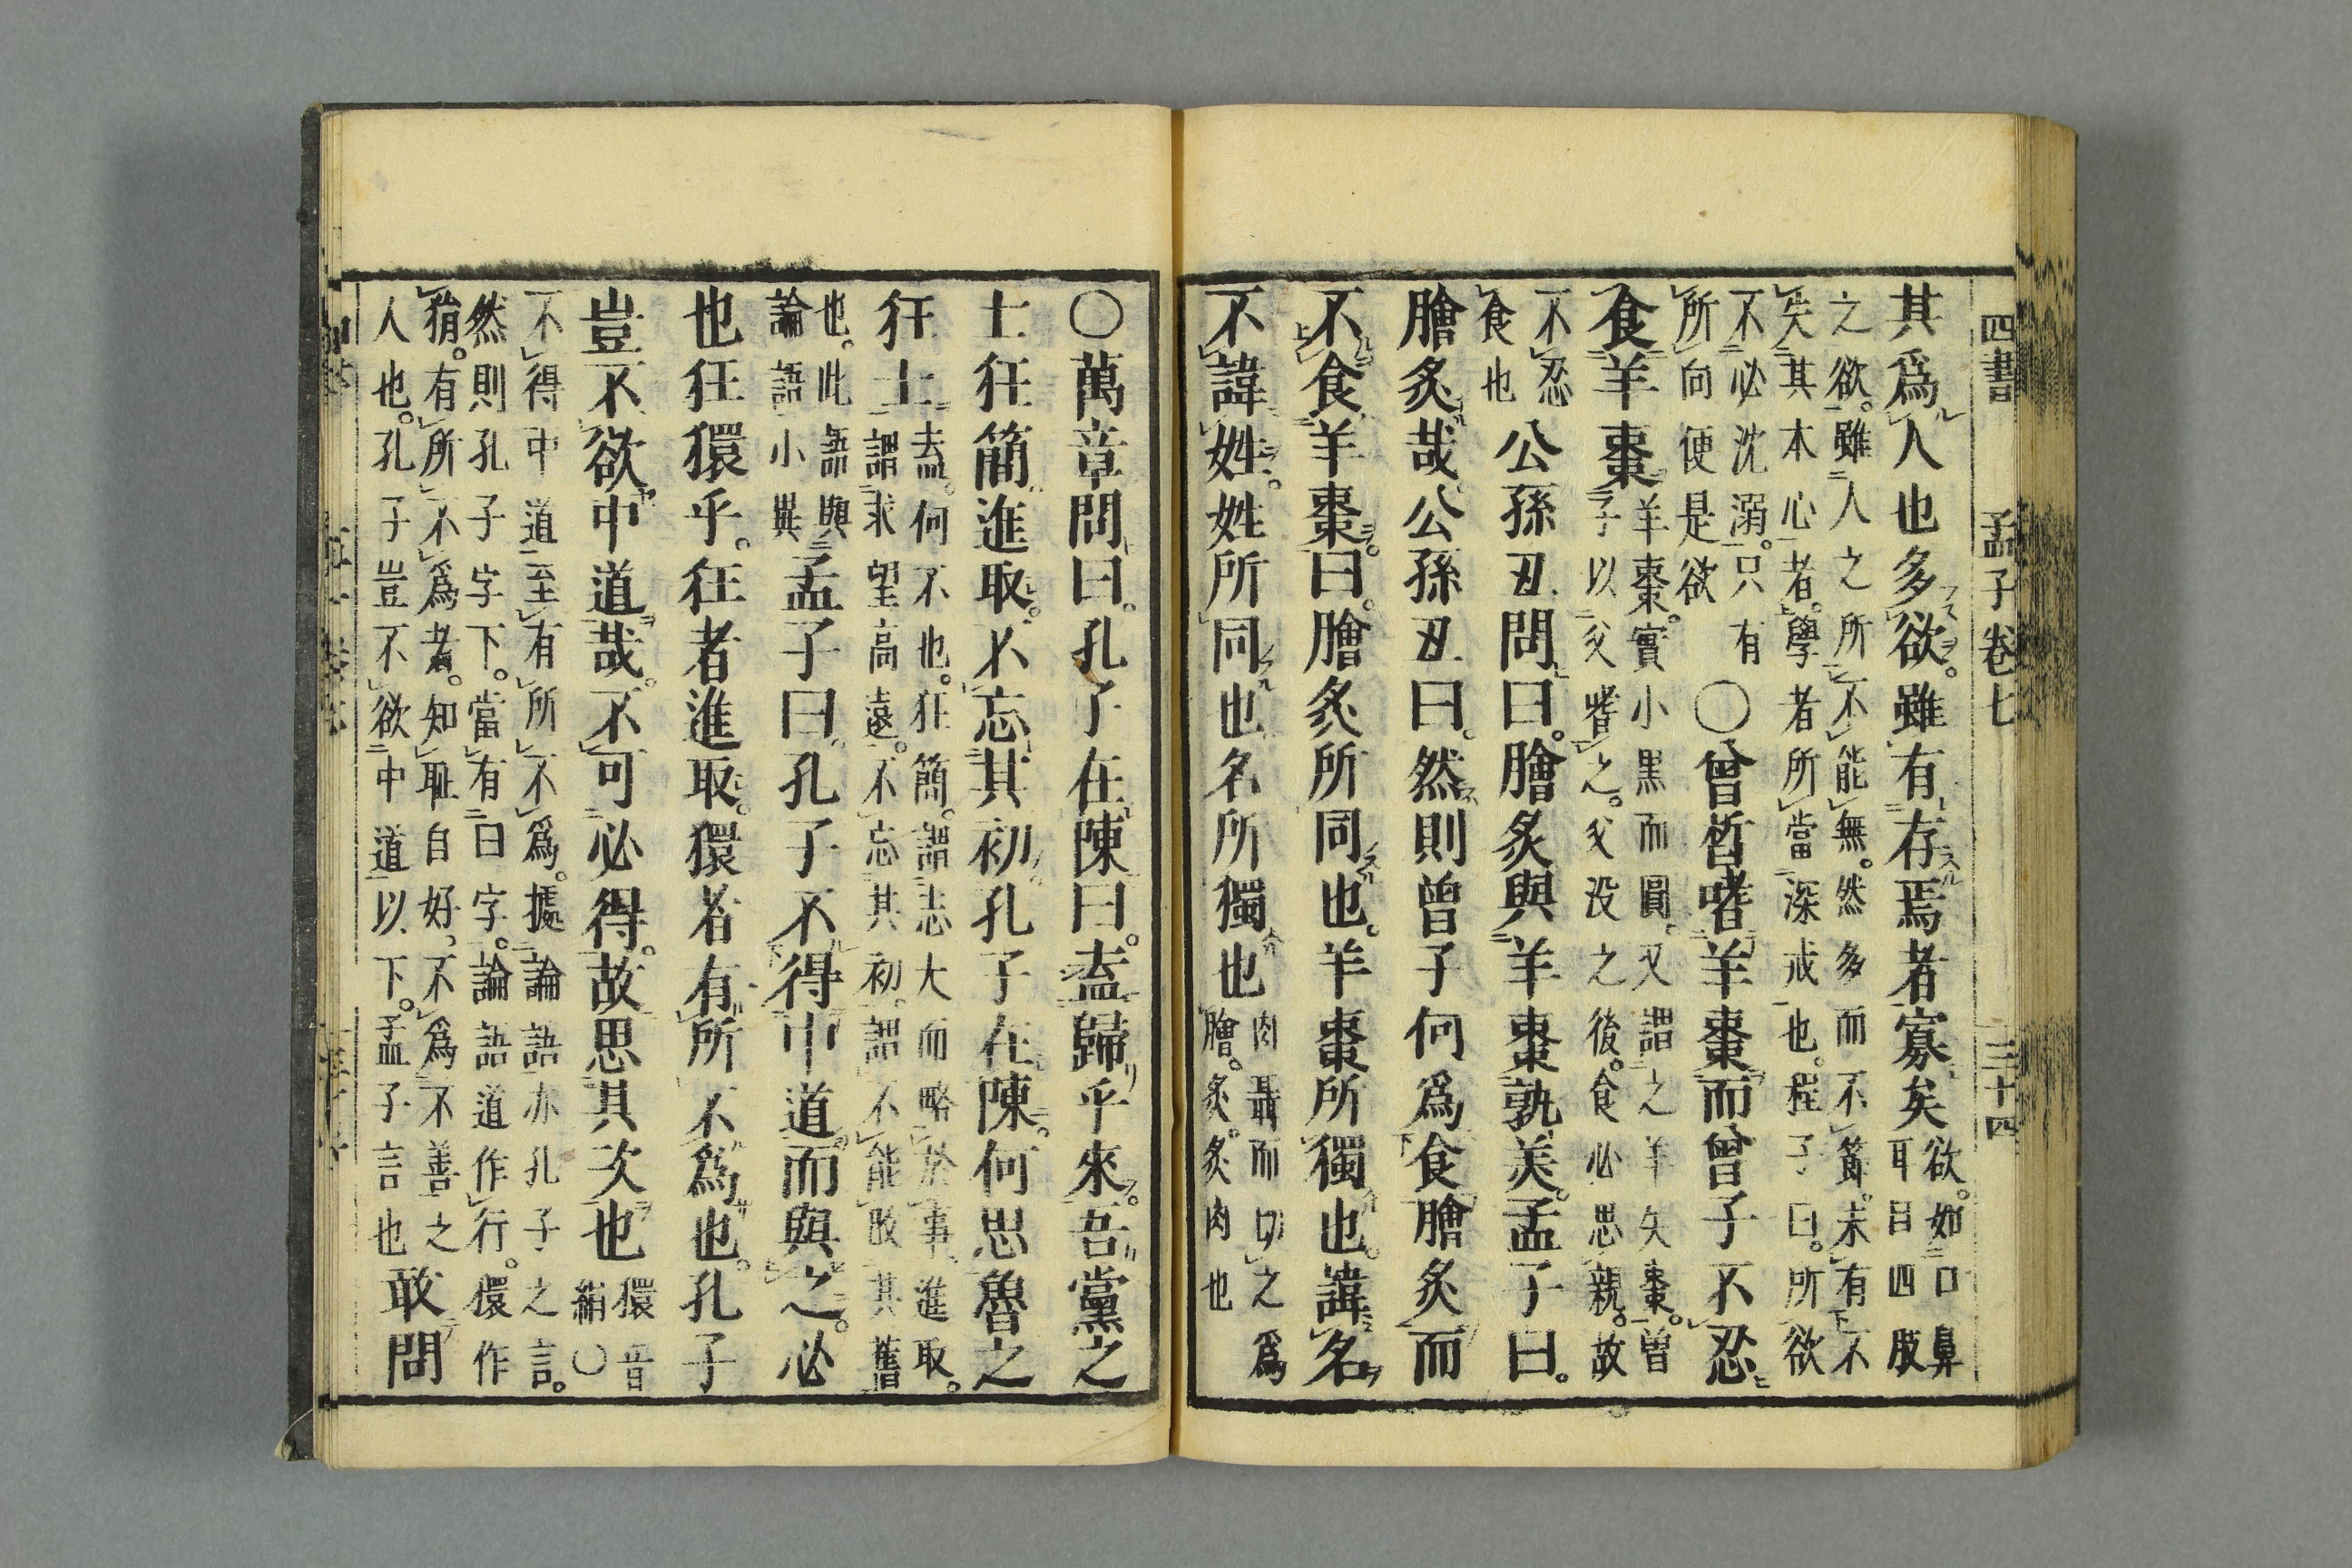 四書 孟子卷七 三十四
其爲人也多欲。雖有存焉者寡矣欲。如口鼻
耳目四肢
之欲。雖人之所不能無。然多而不節。未有不
失其本心者。學者所當深戒也。程子曰。所欲
不必沈溺。只有
所向便是欲
〇曾晳嗜羊棗而曾子不忍
食羊棗羊棗。實小黒而圓。又謂之羊矢棗。曽
子以父嗜之。父没之後。食必思親。故
不忍
食也
公孫丑問曰。膾炙與羊棗孰美。孟子曰。
膾炙哉公孫丑曰。然則曾子何爲食膾炙而
不食羊棗。曰。膾炙所同也。羊棗所獨也。諱名
不諱姓。姓所同也名所獨也肉聶而切之爲
膾。炙。炙肉也
〇萬章問曰。孔子在陳曰。盍歸乎來。吾黨之
士狂簡進取。不忘其初孔子在陳。何思魯之
狂士盍。何不也。狂簡。謂志大而略於事。進取。
謂求望高遠。不忘其初。謂不能改其舊
也。此語與
論語小異
孟子曰。孔子不得中道。而與之。必
也狂獧乎。狂者進取。獧者有所不爲也。孔子
豈不欲中道哉。不可必得。故思其次也獧音
絹〇
不得中道至有所不爲。據論語亦孔子之言。
然則孔子字下。當有曰字。論語道作行。獧作
狷。有所不爲者。知耻自好。不爲不善之
人也。孔子豈不欲中道以下。孟子言也
敢問